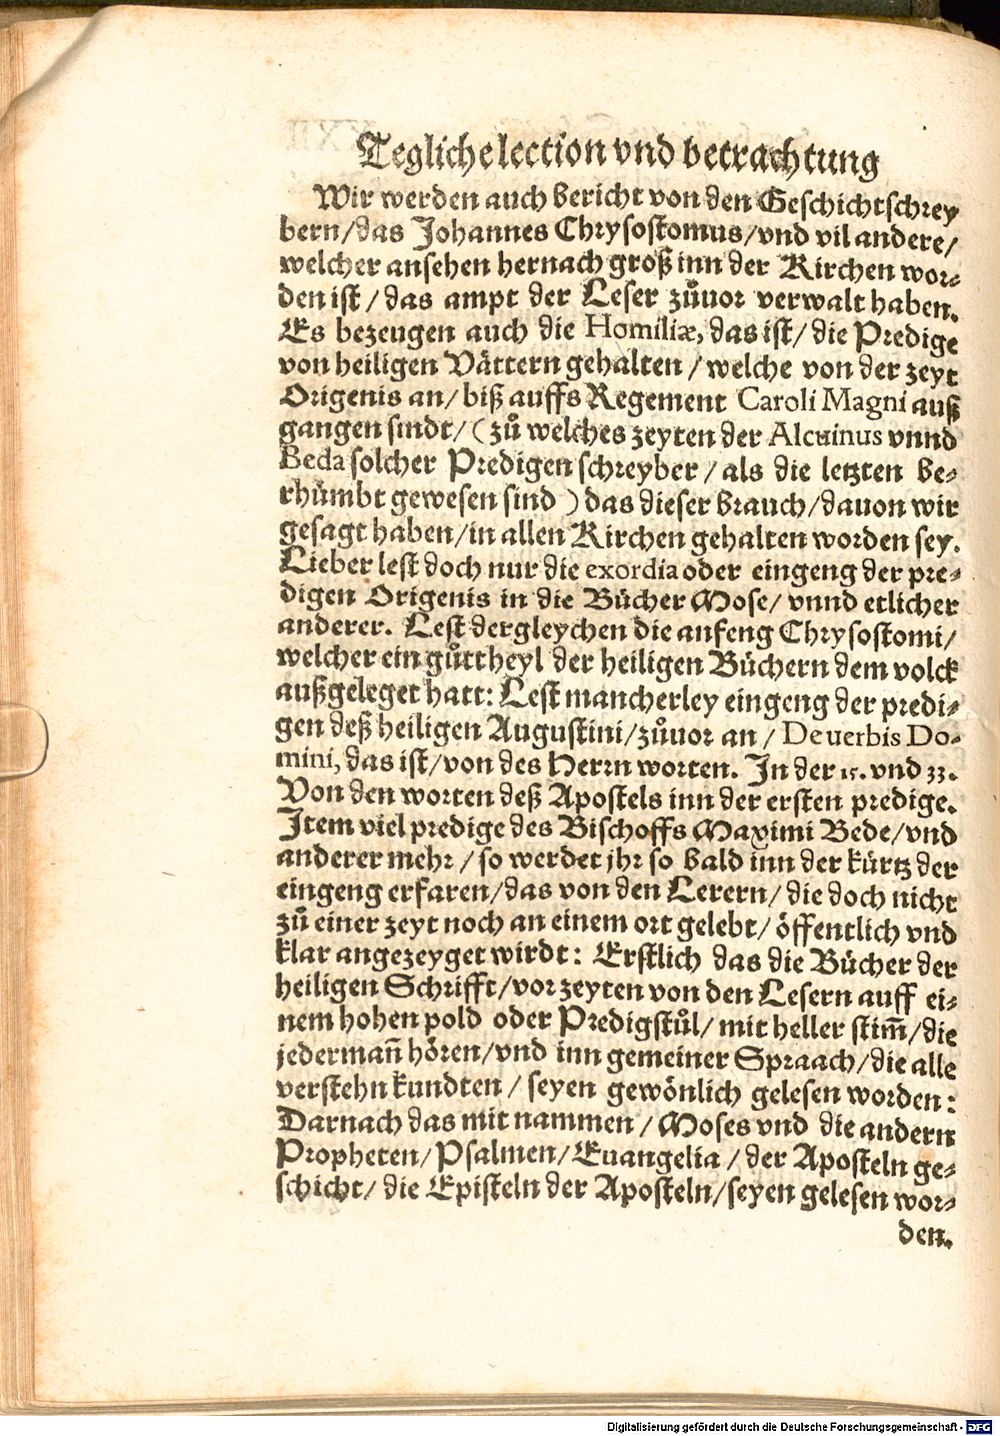 Tegliche lection vnd betrachtung
Wir werden auch bericht von den Geschichtschrey
bern/das Johannes Chrysostomus/vnd vil andere/
welcher ansehen hernach groß inn der Kirchen wor-
den ist/das ampt der Leser zůuor verwalt haben.
Es bezeugen auch die Homiliæ, das ist/die Predige
von heiligen Vättern gehalten/welche von der zeyt
Origenis an/biß auffs Regement Caroli Magni auß
gangen sindt/(zů welches zeyten der Alcuinus vnnd
Beda solcher Predigen schreyber/als die letzten be-
rhümbt gewesen sind) das dieser brauch/dauon wir
gesagt haben/in allen Kirchen gehalten worden sey.
Lieber lest doch nur die exordia oder eingeng der pre-
digen Origenis in die Bücher Mose/vnnd etlicher
anderer. Lest dergleychen die anfeng Chrysostomi/
welcher ein gůttheyl der heiligen Büchern dem volck
außgeleget hatt: Lest mancherley eingeng der predi-
gen deß heiligen Augustini/zůuor an/De uerbis Do-
mini, das ist/von des Herrn worten. In der 15. vnd 33.
Von den worten deß Apostels inn der ersten predige.
Item viel predige des Bischoffs Maximi Bede/vnd
anderer mehr/so werdet jhr so bald inn der kürtz der
eingeng erfaren/das von den Lerern/die doch nicht
zů einer zeyt noch an einem ort gelebt/öffentlich vnd
klar angezeyget wirdt: Erstlich das die Bücher der
heiligen Schrifft/vor zeyten von den Lesern auff ei-
nem hohen pold oder Predigstůl/mit heller stim̃/die
jederman̄ hören/vnd inn gemeiner Spraach/die alle
verstehn kundten/seyen gewönlich gelesen worden:
Darnach das mit nammen/Moses vnd die andern
Propheten/Psalmen/Euangelia/der Aposteln ge-
schicht/die Episteln der Aposteln/seyen gelesen wor-
den.
Digitalisierung gefördert durch die Deutsche Forschungsgemeinschaft - DFG